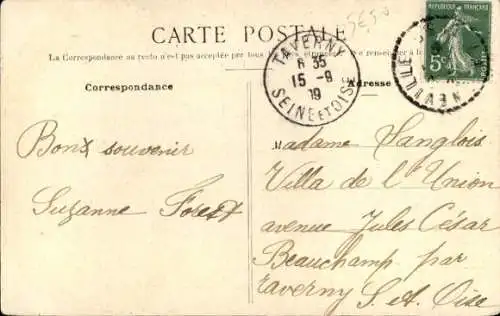 CARTE POSTALE
La Correspondance au recto n'est pas acceptée par tous
se renseigner à la
Correspondance
Adresse
TAVERNY
8 35
15 - 9
19
SEINE ET OISE
RÉPUBLIQUE FRANÇAISE
5c
Bons souvenir
Suzanne Forest
Madame Langlois
Villa de l'Union
avenue Jules César
Beauchamp par
Taverny S. et Oise